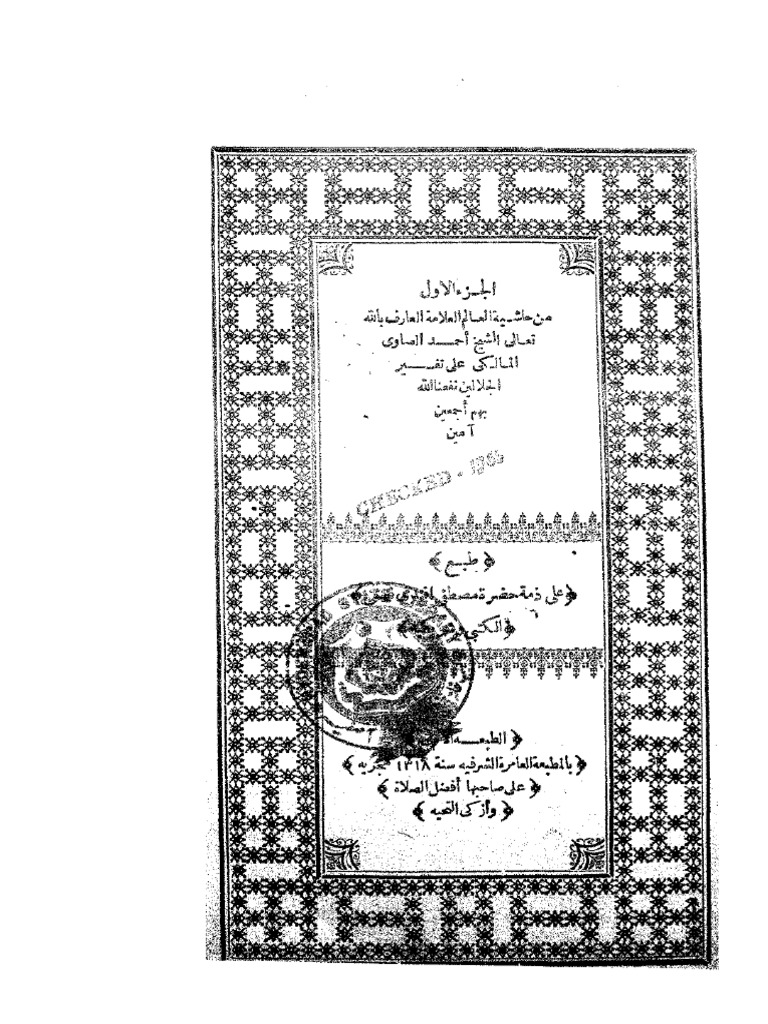 الجزء الاول
من حاشية العالم العلامة العارف بالله
تعالى الشيخ أحمد الصاوى
المالكى على تفسير
الجلالين نفعنا الله
بهم أجمعين
آمين
CHECKED - 1965
﴿ طبع ﴾
﴿ على ذمة حضرة مصطفى افندى فهمى ﴾
﴿ الكتبى
﴿ الطبعة
﴿ بالمطبعة العامرة الشرفيه سنة ١٣١٨ هجريه ﴾
﴿ على صاحبها أفضل الصلاة ﴾
﴿ وأزكى التحيه ﴾